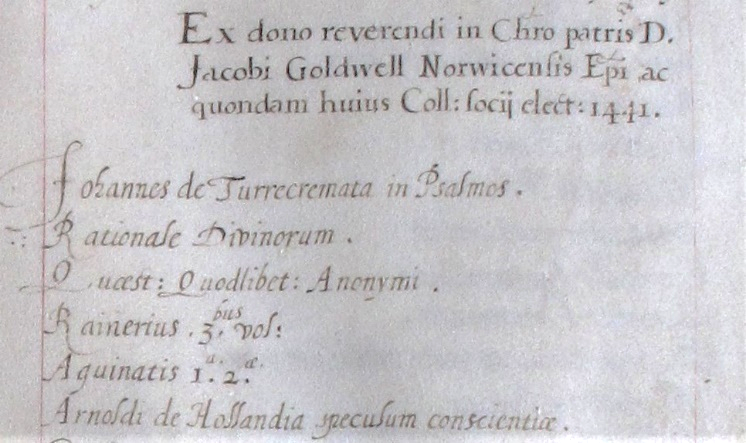 Ex dono reverendi in Chro patris D.
Jacobi Goldwell Norwicensis Epi ac
quondam huius Coll: socij elect: 1441.
Johannes de Turrecremata in Psalmos.
Rationale Divinorum.
Quæst: Quodlibet: Anonymi.
Rainerius. 3.bus vol:
Aquinatis 1.a 2.æ
Arnoldi de Hollandia speculum conscientiæ.